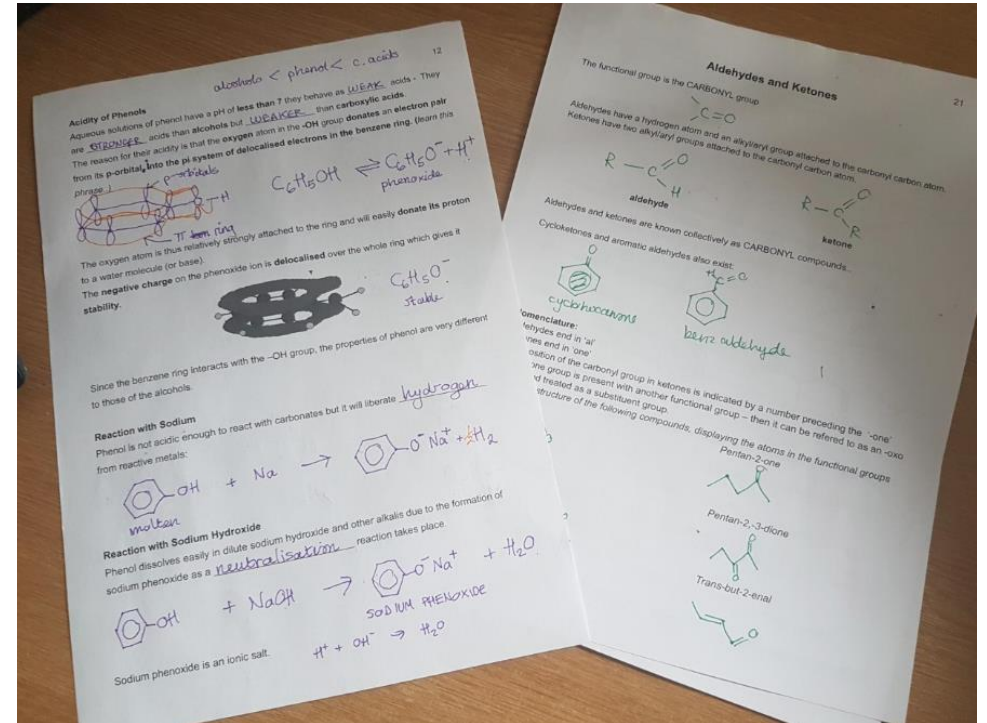 12
alcohols < phenol < c. acids
Acidity of Phenols
Aqueous solutions of phenol have a pH of less than 7 they behave as WEAK acids - They
are STRONGER acids than alcohols but WEAKER than carboxylic acids
The reason for their acidity is that the oxygen atom in the -OH group donates an electron pair
from its p-orbital, into the pi system of delocalised electrons in the benzene ring. (learn this
phrase.)
p-orbitals
C6H5OH ⇌ C6H5O⁻ + H⁺
phenoxide
H
π ring
The oxygen atom is thus relatively strongly attached to the ring and will easily donate its proton
to a water molecule (or base).
The negative charge on the phenoxide ion is delocalised over the whole ring which gives it
stability.
C6H5O⁻
stable
Since the benzene ring interacts with the –OH group, the properties of phenol are very different
to those of the alcohols.
Reaction with Sodium
Phenol is not acidic enough to react with carbonates but it will liberate hydrogen
from reactive metals:
OH + Na → O⁻Na⁺ + ½H2
molten
Reaction with Sodium Hydroxide
Phenol dissolves easily in dilute sodium hydroxide and other alkalis due to the formation of
sodium phenoxide as a neutralisation reaction takes place.
OH + NaOH → O⁻Na⁺ + H2O
SODIUM PHENOXIDE
Sodium phenoxide is an ionic salt.
H⁺ + OH⁻ → H2O
21
Aldehydes and Ketones
The functional group is the CARBONYL group
C=O
Aldehydes have a hydrogen atom and an alkyl/aryl group attached to the carbonyl carbon atom.
Ketones have two alkyl/aryl groups attached to the carbonyl carbon atom.
R—C=O
H
aldehyde
R—C=O
R
ketone
Aldehydes and ketones are known collectively as CARBONYL compounds..
Cycloketones and aromatic aldehydes also exist.
O
H C=O
benzaldehyde
omenclature:
ldehydes end in 'al'
nes end in 'one'
osition of the carbonyl group in ketones is indicated by a number preceding the '-one'
one group is present with another functional group – then it can be refered to as an -oxo
d treated as a substituent group.
structure of the following compounds, displaying the atoms in the functional groups
Pentan-2-one
O
Pentan-2,-3-dione
O
O
Trans-but-2-enal
O